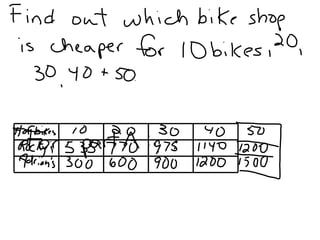 Find out which bike shop
is cheaper for 10 bikes, 20,
30, 40 + 50.
10 20 30 40 50
Rocky's 535 770 975 1140 1200
Adrian's 300 600 900 1200 1500